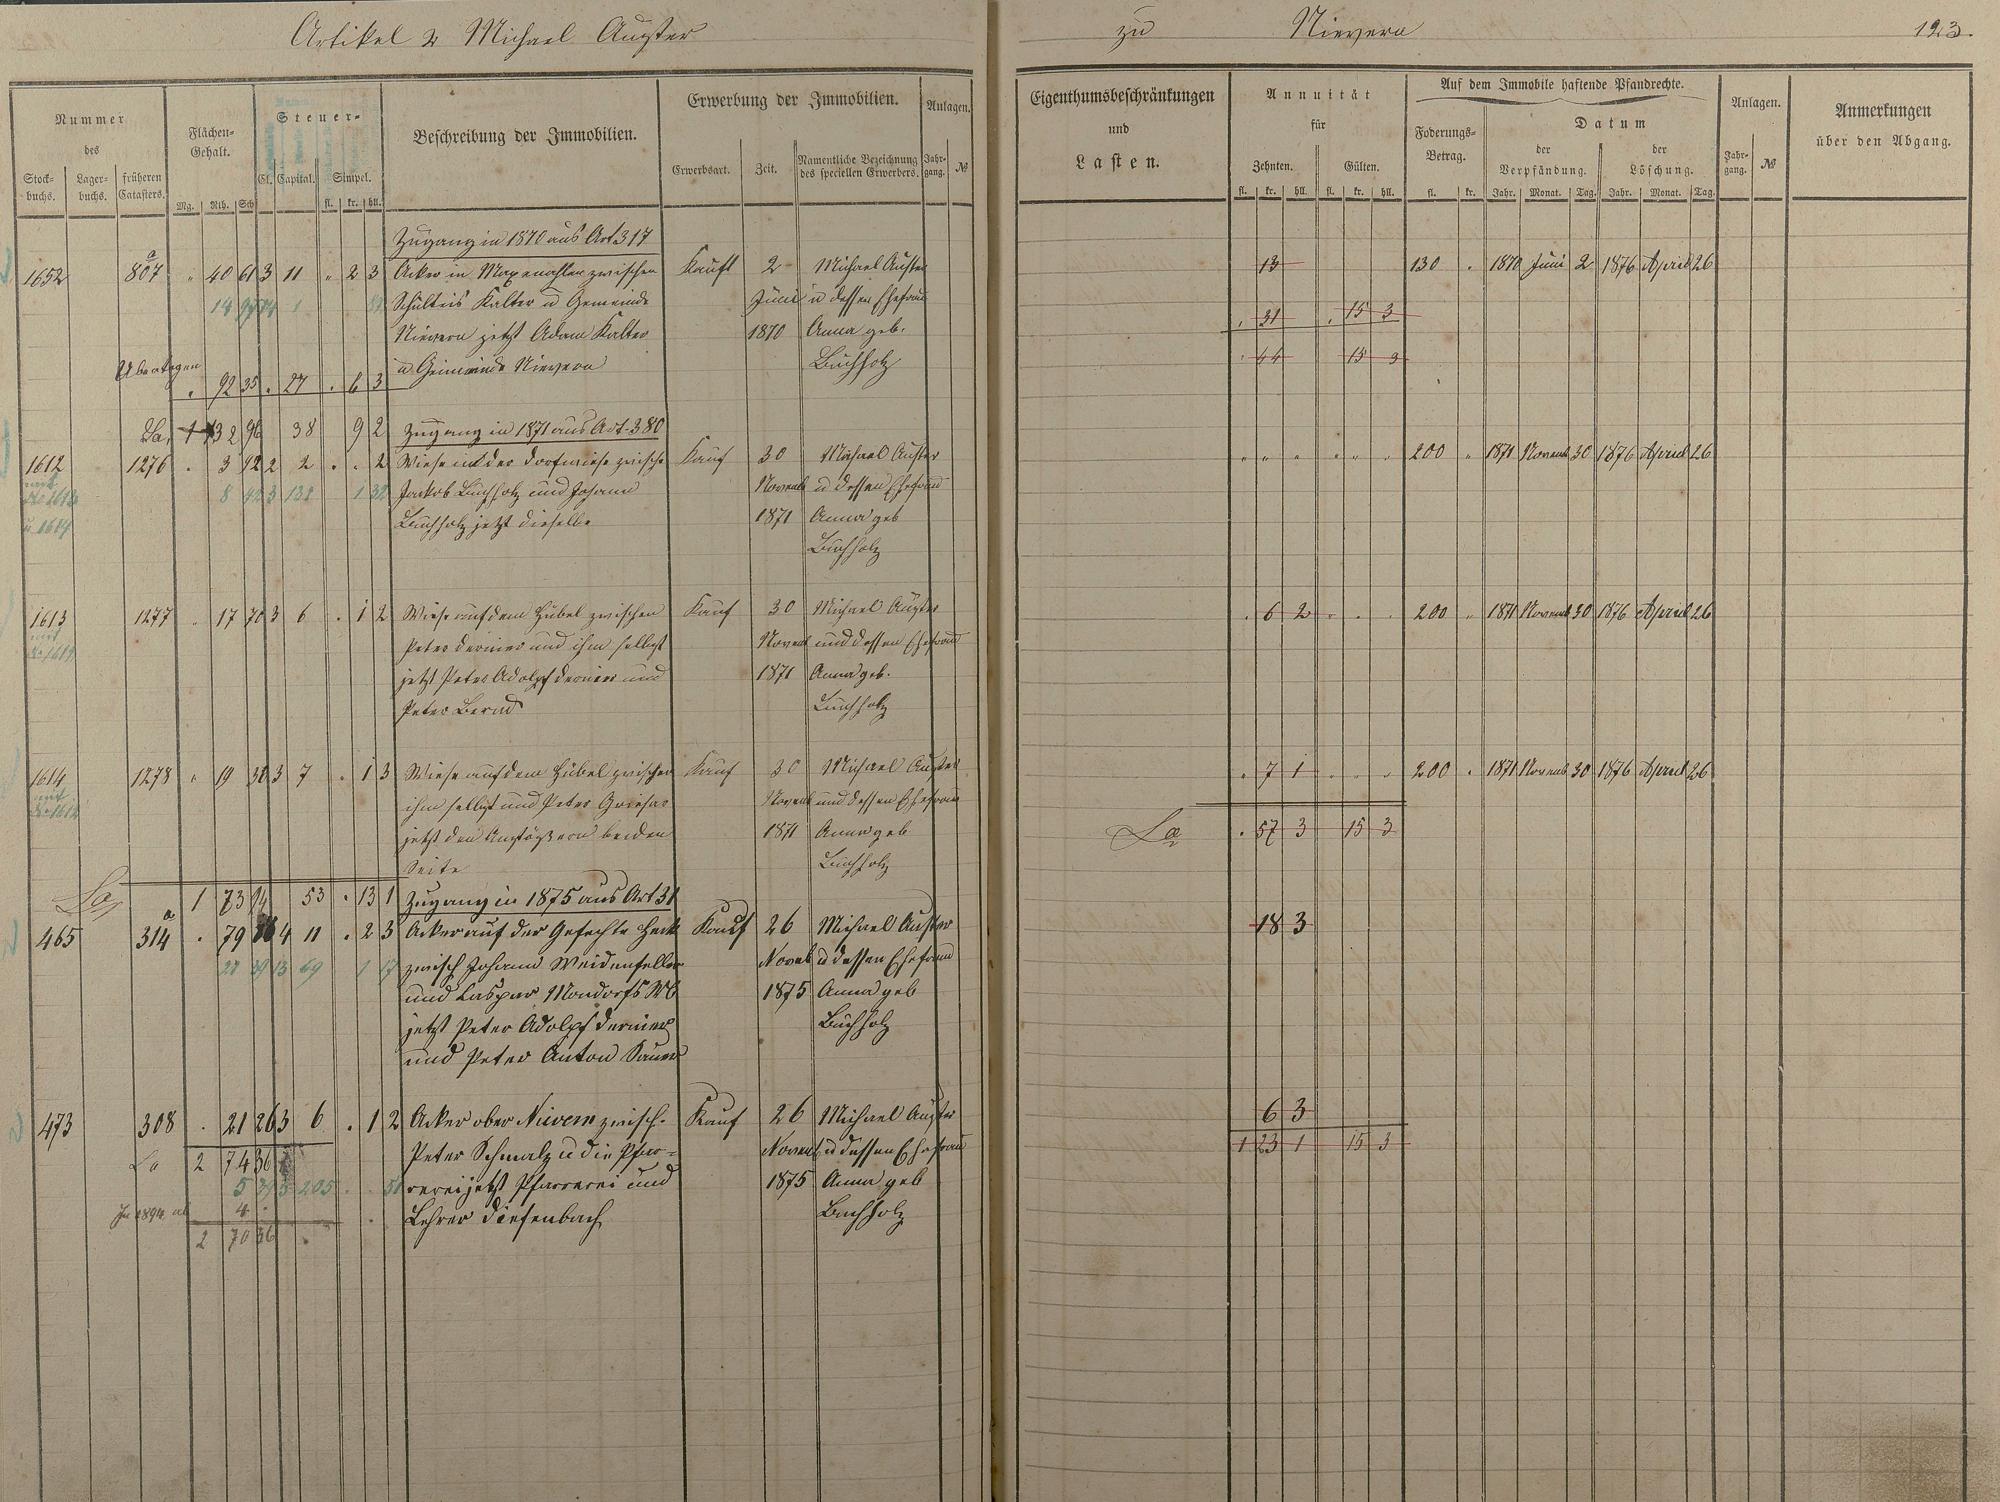 Artikel 2 Michael Auster zu Nievern 123.
Nummer des
Stock-buchs. Lager-buchs. früheren Catasters.
Flächen-Gehalt.
Mg. Rth. Sch
Steuer-
Cl. Capital. Simpel.
fl. kr. hll.
Beschreibung der Immobilien.
Erwerbung der Immobilien.
Erwerbsart. Zeit. Namentliche Bezeichnung des speciellen Erwerbers.
Anlagen.
Jahr-gang. №
Eigenthumsbeschränkungen
und
Lasten.
Annuität
für
Zehnten. Gülten.
fl. kr. hll. fl. kr. hll.
Auf dem Immobile haftende Pfandrechte.
Foderungs-Betrag.
fl. kr.
Datum
der Verpfändung. der Löschung.
Jahr. Monat. Tag. Jahr. Monat. Tag.
Anlagen.
Jahr-gang. №
Anmerkungen
über den Abgang.
Zugang in 1870 aus Art 317
1652 807 a " 40 61 3 11 " 2 3 Acker in zwischen Kauft 2 Michael Auster 13 130 . 1870 Juni 2 1876 April 26
14 97 1 Schulteis Kalter u Gemeinde Juni u dessen Ehefrau . 31 . 15 3
Nievern jetzt Adam Kalter 1870 Anna geb. . 44 15 3
u Gemeinde Nievern Buchholz
Übertragen . 92 35 . 27 . 6 3
Sa, 1 32 96 38 9 2 Zugang in 1871 aus Art. 380
1612 1276 . 3 92 2 2 . . 2 Wiese in der Dorfwiese zwische Kauf 30 Michael Auster " " " " " " 200 " 1871 Novemb 30 1876 April 26
mit № 1613 u 1614 8 3 132 1 32 Jackob Buchholz und Johann Novemb u dessen Ehefrau
Buchholz jetzt dieselbe 1871 Anna geb
Buchholz
1613 1277 " 17 70 3 6 . 1 2 Wiese auf dem Hübel zwischen Kauf 30 Michael Auster . 6 2 . . . 200 " 1871 Novemb 30 1876 April 26
mit № 1612 Peter Dernier und ihm selbst Novemb und dessen Ehefrau
jetzt Peter Adolpf Dernier und 1871 Anna geb.
Peter Bernd Buchholz
1614 1278 " 19 38 3 7 . 1 3 Wiese auf dem Hübel zwischen Kauf 30 Michael Auster . 7 1 . . . 200 . 1871 Novemb 30 1876 April 26
mit № 1612 ihm selbst und Peter Novemb und dessen Ehefrau
jetzt den Anstößern beiden 1871 Anna geb Sa . 57 3 15 3
Seite Buchholz
Sa, 1 73 94 53 . 13 1 Zugang in 1875 aus Art 31
465 314 a . 79 16 4 11 . 2 3 Acker auf der Heck Kauf 26 Michael Auster 18 3
39 13 69 1 17 zwisch Johann Weidenfeller Novemb u dessen Ehefrau
und Caspar Mondorfs Wb 1875 Anna geb
jetzt Peter Adolpf Dernier Buchholz
und Peter Anton Sauer
473 308 . 21 26 3 6 . 1 2 Acker ober Nievern zwisch- Kauf 26 Michael Auster 6 3
Sa 2 74 36 Peter Schmalz u die Pfar- Novemb u dessen Ehefrau 1 23 1 15 3
5 39 5 205 51 rerei jetzt Pfarrerei und 1875 Anna geb
In 1894 ab 4 . Lehrer Diefenbach Buchholz
2 70 36